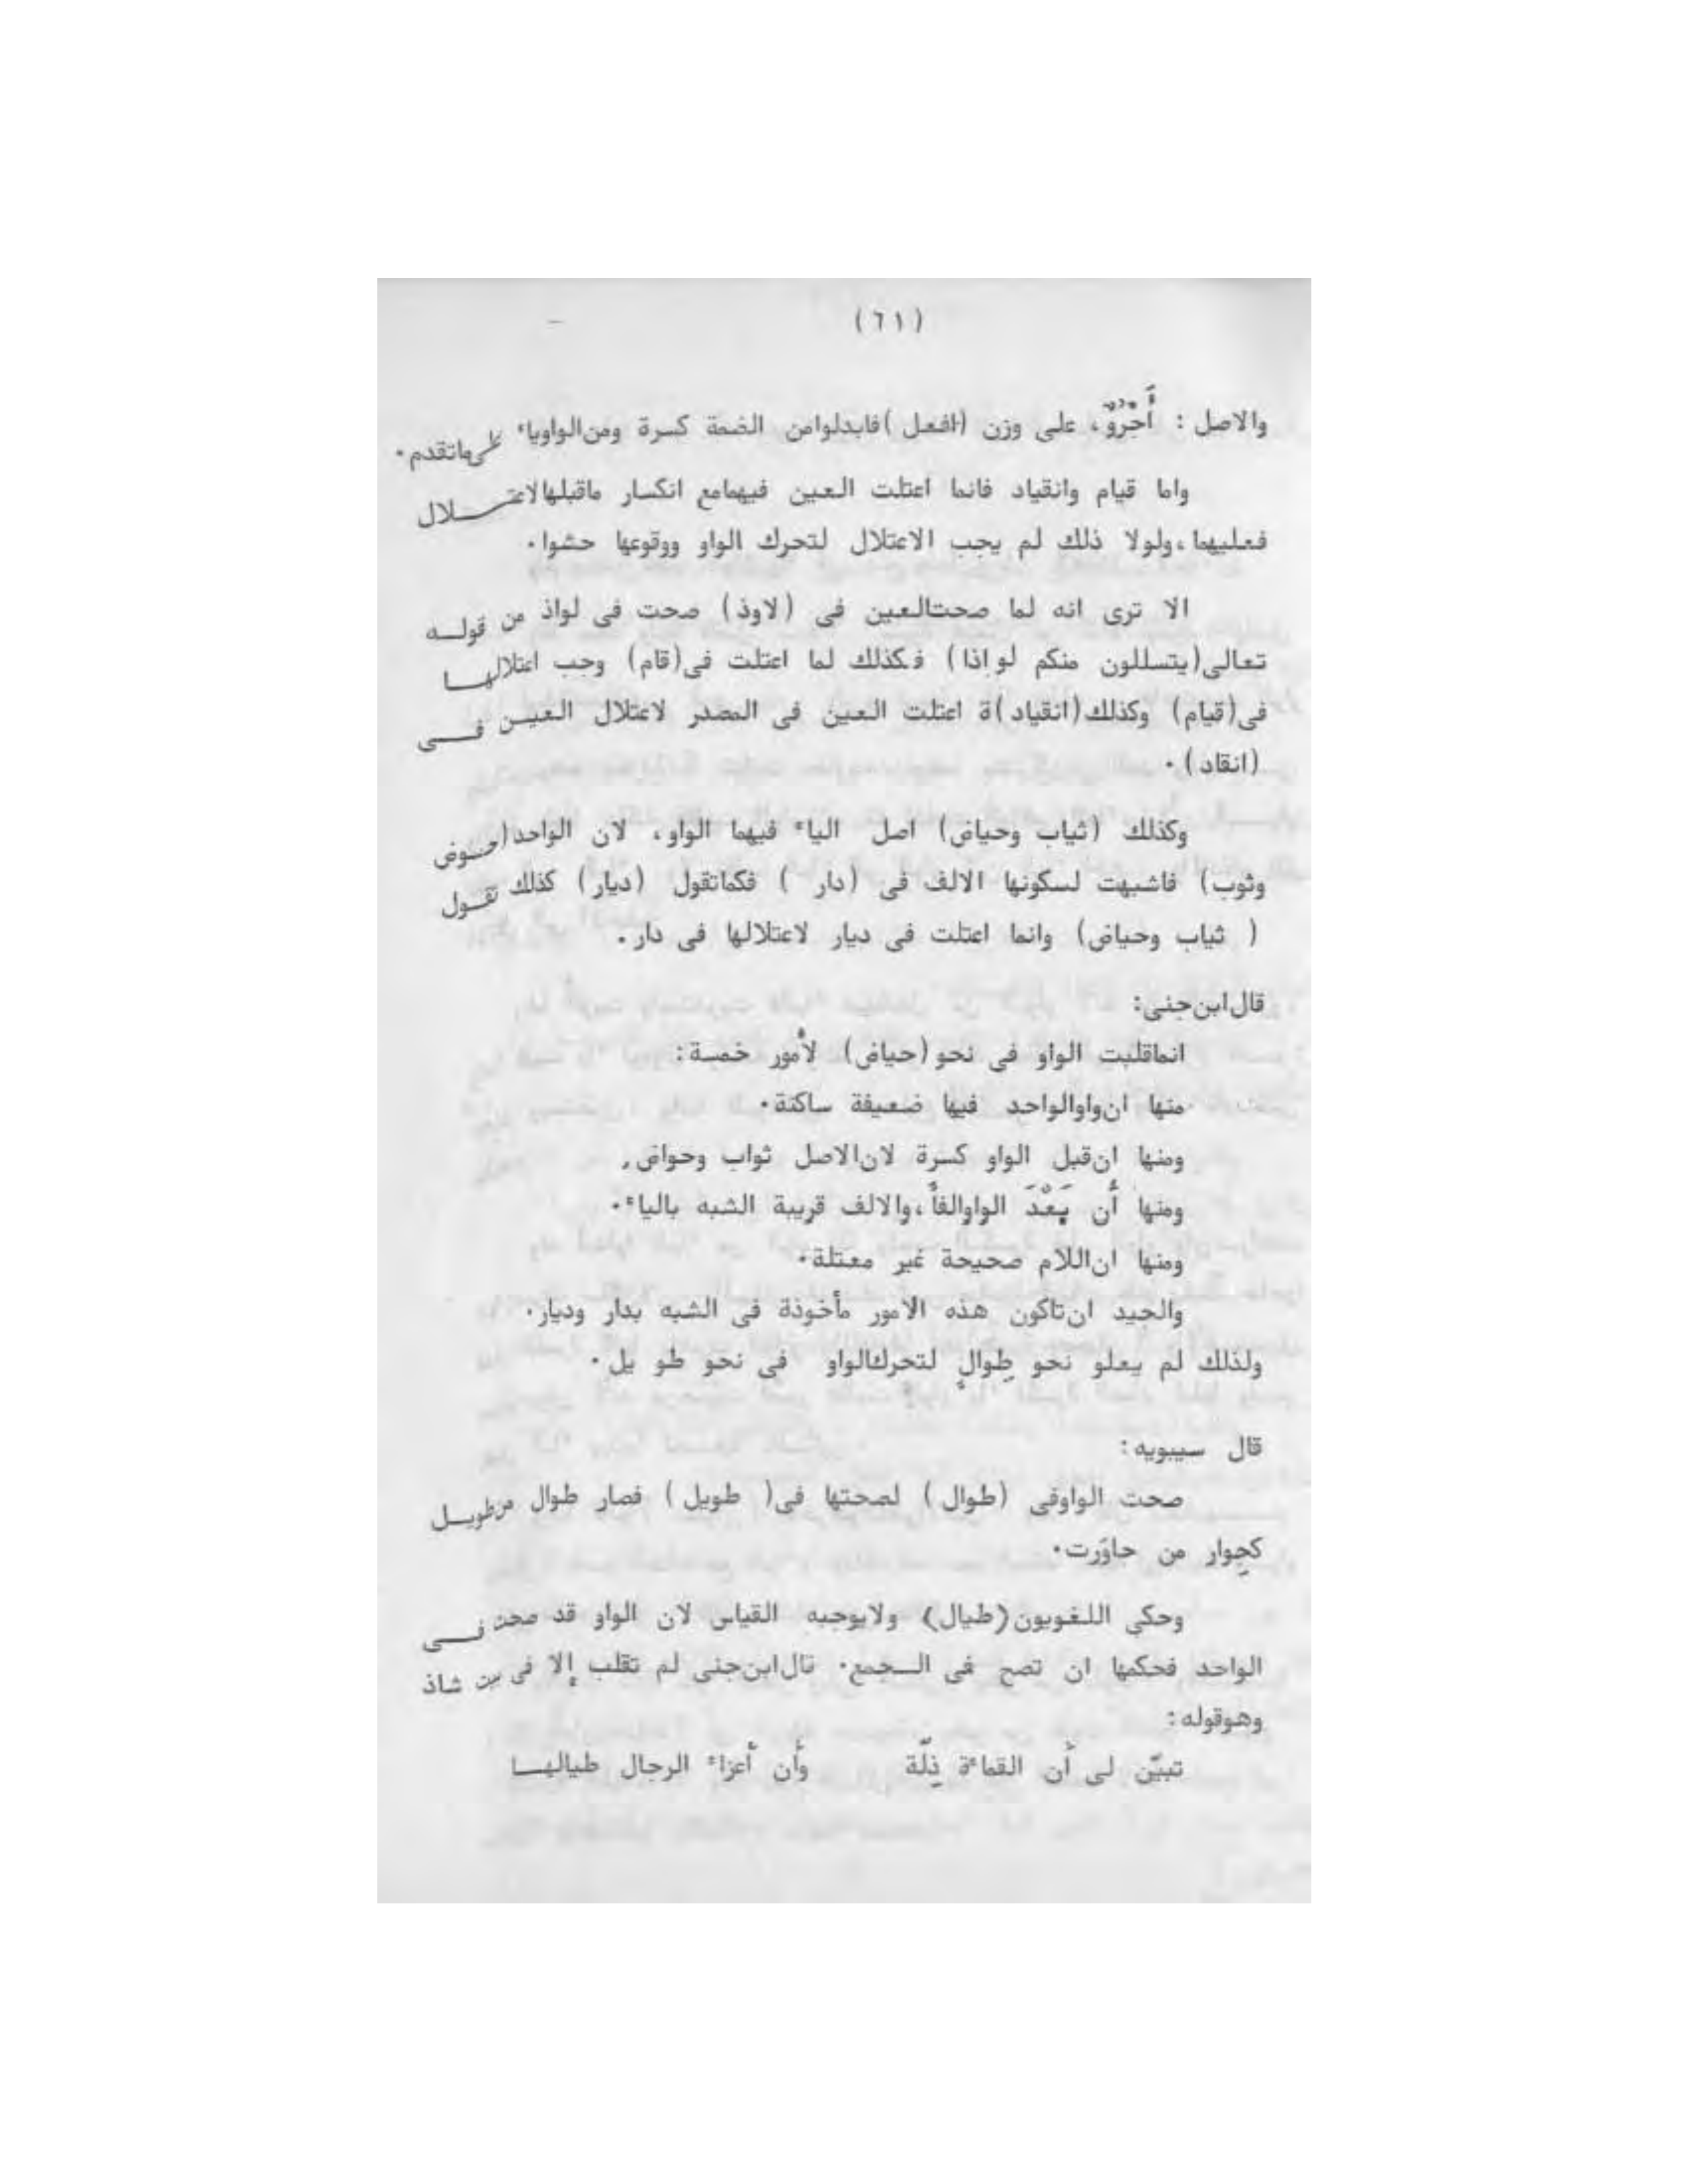 (٦١)
والاصل : أَجْرُوٌ، على وزن (افعل) فابدلوا من الضمة كسرة ومن الواو ياء على ماتقدم٠
واما قيام وانقياد فانما اعتلت العين فيهما مع انكسار ماقبلها لاعتـــلال
فعليهما، ولولا ذلك لم يجب الاعتلال لتحرك الواو ووقوعها حشوا٠
الا ترى انه لما صحت العين فى (لاوذ) صحت فى لواذ من قولــه
تعالى (يتسللون منكم لواذا) فكذلك لما اعتلت فى (قام) وجب اعتلالهــا
فى (قيام) وكذلك (انقياد) ة اعتلت العين فى المصدر لاعتلال العيـن فــى
(انقاد)٠
وكذلك (ثياب وحياض) اصل الياء فيهما الواو، لان الواحد (حـوض
وثوب) فاشبهت لسكونها الالف فى (دار ) فكما تقول (ديار) كذلك تقـول
( ثياب وحياض) وانما اعتلت فى ديار لاعتلالها فى دار.
قال ابن جنى:
انما قلبت الواو فى نحو (حياض) لأمور خمسة:
منها ان واو الواحد فيها ضعيفة ساكنة٠
ومنها ان قبل الواو كسرة لان الاصل ثواب وحواض,
ومنها أن بَعْدَ الواو الفاً، والالف قريبة الشبه بالياء٠
ومنها ان اللام صحيحة غير معتلة٠
والجيد ان تاكون هذه الامور مأخوذة فى الشبه بدار وديار.
ولذلك لم يعلو نحو طِوالٍ لتحرك الواو فى نحو طو يل٠
قال سيبويه:
صحت الواو فى (طوال) لصحتها فى( طويل) فصار طوال من طويــل
كجِوار من حاوَرت٠
وحكي اللغويون (طيال) ولا يوجبه القياس لان الواو قد صحت فــى
الواحد فحكمها ان تصح فى الـجمع٠ قال ابن جنى لم تقلب إلا فى شاذ
وهو قوله:
تبيّن لى أن القماءة ذِلّة وأن أعزاء الرجال طيالهــا